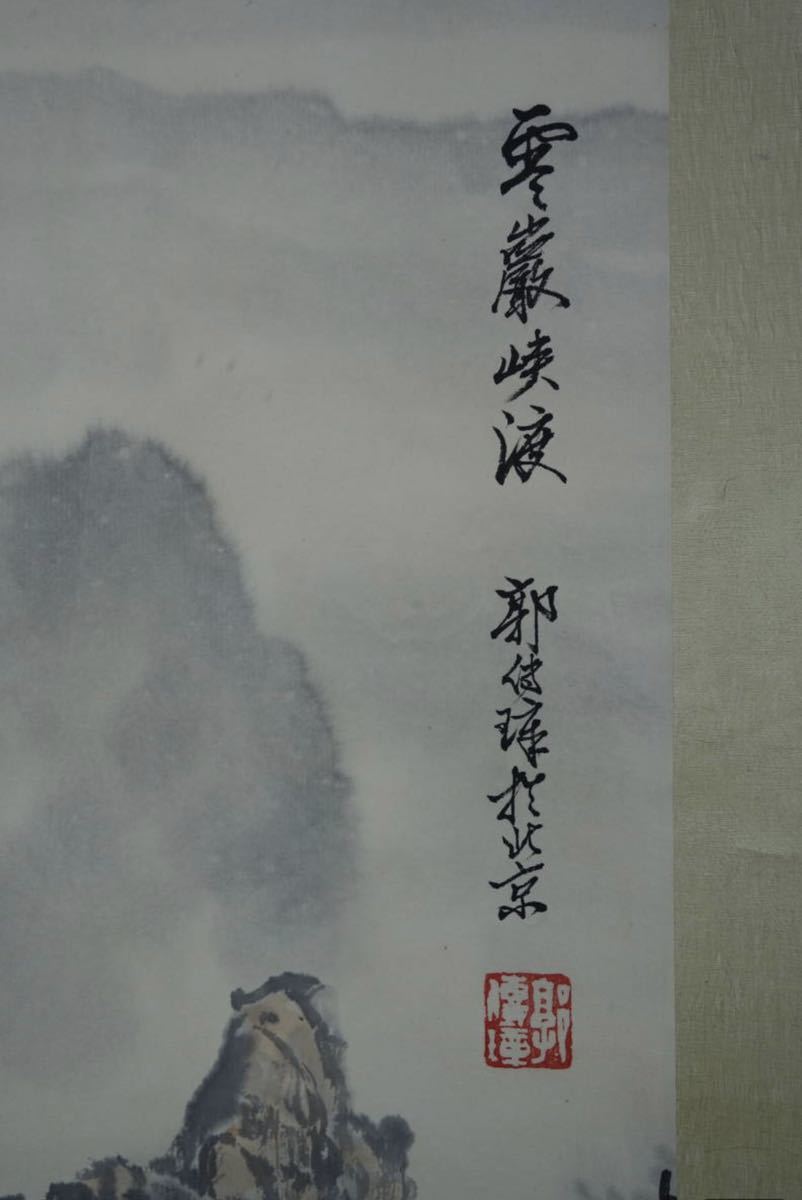 雲巖峡渡
郭传璋於北京
郭傳璋